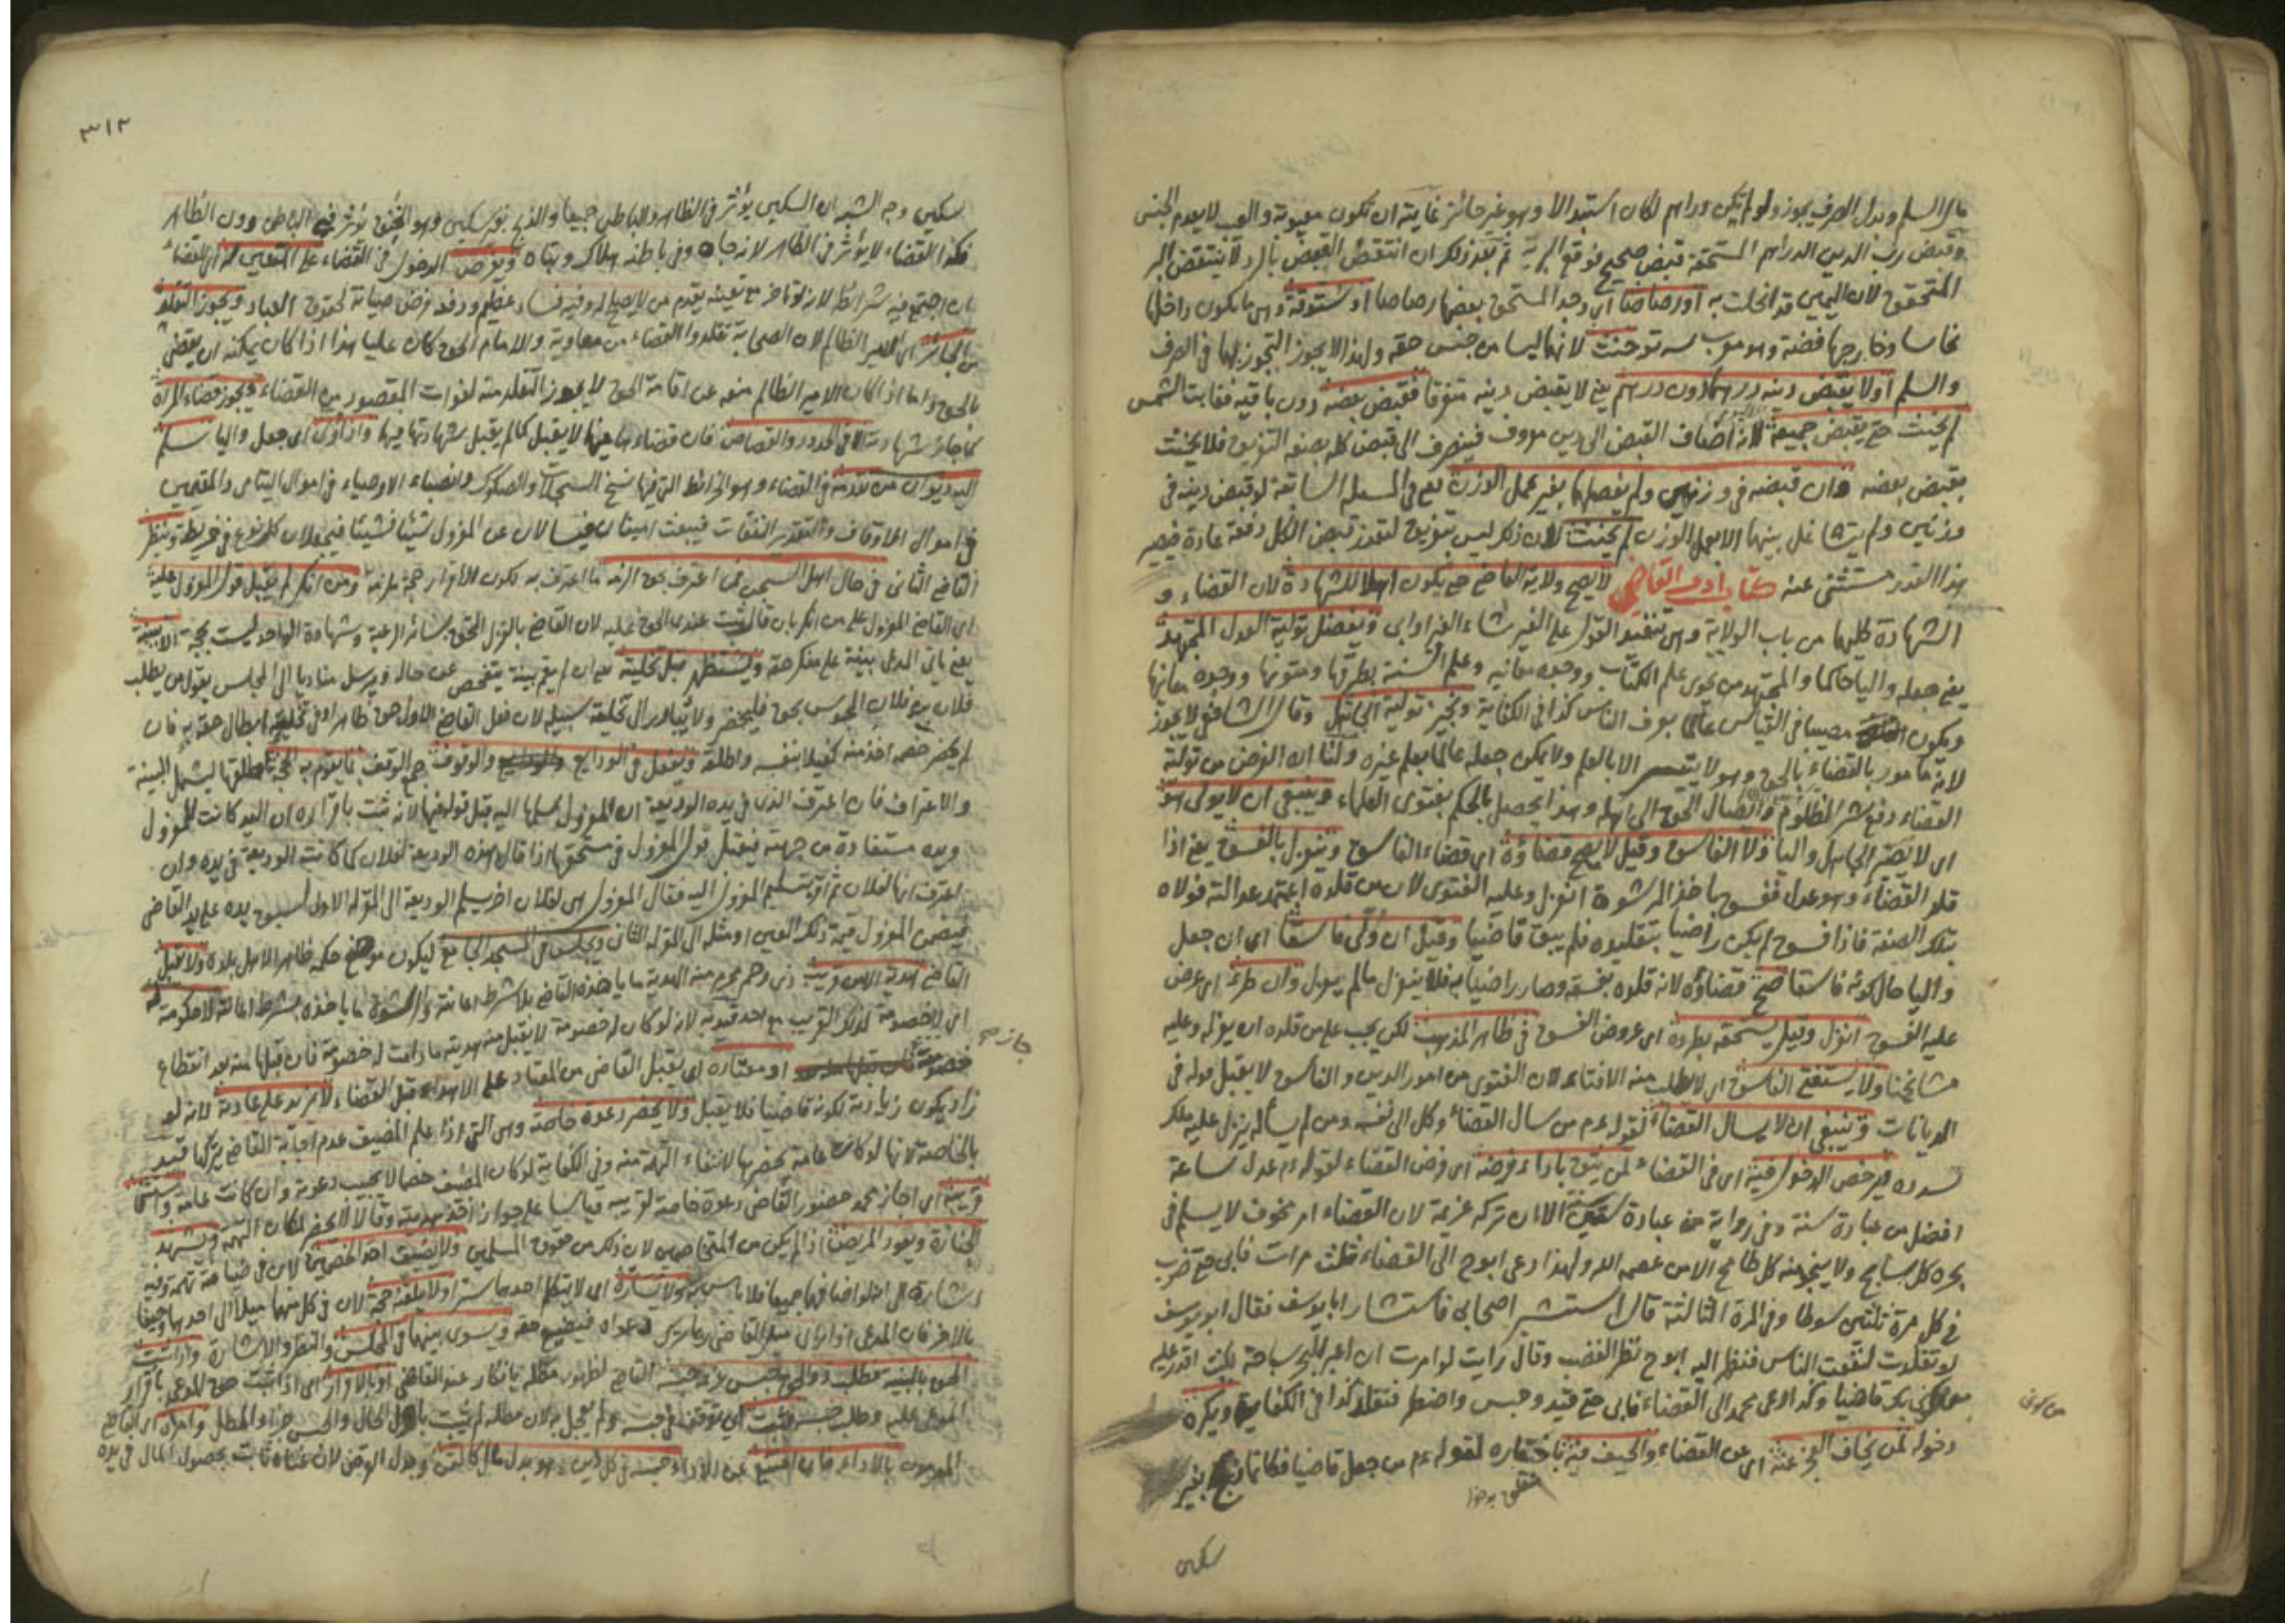 وقبض رب الدين الدراهم المستحقة قبض صحيح فوقع البر به ثم بعد ذلك ان انتقض القبض بالرد لا ينتقض البر
المتحقق لان اليمين قد انحلت به او رصاصا اي وجد المستحق بعضها رصاصا او ستوقة وهي ما يكون داخلها
نحاسا وخارجها فضة وهو معرب سه تو حنث لانهما ليسا من جنس حقه ولهذا لا يجوز التجوز بهما في الصرف
والسلم او لا يقبض دينه درهما دون درهم يعني لا يقبض دينه متفرقا فقبض بعضه دون باقيه فغابت الشمس
لم يحنث حتى يقبض جميعه لانه اضاف القبض الى دين معروف فينصرف الى قبض كله بصفة التفريق فلا يحنث
بقبض بعضه وان قبضه في وزنين ولم يفصلها بغير عمل الوزن يعني في المسئلة السابقة لو قبض دينه في
وزنين ولم يتشاغل بينهما الا بعمل الوزن لم يحنث لان ذلك ليس بتفريق لتعذر قبض الكل دفعة عادة فيصير
هذا القدر مستثنى عنه كتاب ادب القاضي لا يصح ولاية القاضي حتى يكون اهلا للشهادة لان القضاء و
الشهادة كليهما من باب الولاية وهي تنفيذ القول على الغير شاء الغير او ابى ويفضل تولية العدل المجتهد
يعني جعله واليا حاكما والمجتهد من يحوى علم الكتاب ووجوه معانيه وعلم السنة بطرقها ومتونها ووجوه معانيها
ويكون مصيبا في القياس عالما بعرف الناس كذا في الكفاية ونجيز تولية الجاهل وقال الشافعي لا يجوز
لانه مامور بالقضاء بالحق وهو لا يتيسر الا بالعلم ولا يمكن جعله عالما بعلم غيره ولنا ان الغرض من تولية
القضاء دفع شر الظلوم وايصال الحق الى اهله وهذا يحصل بالحكم بفتوى العلماء وينبغي ان لا يولى هو
اي لا يصير الجاهل واليا ولا الفاسق وقيل لا يصح قضاؤه اي قضاء الفاسق وينعزل بالفسق يعني اذا
قلد القضاء وهو عدل ففسق باخذ الرشوة انعزل وعليه الفتوى لان من قلده اعتمد عدالته فولاه
بتلك الصفة فاذا فسق لم يكن راضيا بتقليده فلم يبق قاضيا وقيل ان ولى فاسقا اي ان جعل
واليا حال كونه فاسقا صح قضاؤه لانه قلده بفسقه وصار راضيا به فلا ينعزل ما لم يعزل وان طرء اي عرض
عليه الفسق انعزل وقيل يستحقه بطروه اي عروض الفسق في ظاهر المذهب لكن يجب على من قلده ان يعزله وعليه
مشايخنا ولا يستفتى الفاسق اي لا يطلب منه الافتاء لان الفتوى من امور الدين والفاسق لا يقبل قوله في
الديانات وينبغي ان لا يسال القضاء لقوله عم من سال القضاء وكل الى نفسه ومن لم يسأله ينزل عليه ملك
يسدده ويرخص الدخول فيه اي في القضاء لمن يثق باداء فرضه اي فرض القضاء لقوله عم عدل ساعة
افضل من عبادة سنة وفي رواية من عبادة ستين سنة الا ان تركه عزيمة لان القضاء امر مخوف لا يسلم في
بحره كل سابح ولا ينجو منه كل طامح الا من عصمه الله ولهذا دعى ابو ح الى القضاء ثلث مرات فابى حتى ضرب
في كل مرة ثلثين سوطا وفي المرة الثالثة قال استشير اصحابي فاستشار ابا يوسف فقال ابو يوسف
لو تقلدت لنفعت الناس فنظر اليه ابو ح نظر الغضب وقال رايت لو امرت ان اعبر البحر سباحة لكنت اقدر عليه
بك قاضيا وكذا دعى محمد الى القضاء فابى حتى قيد وحبس واضطر فتقلد كذا في الكفاية ويكره
دخوله لمن يخاف العجز عنه اي عن القضاء والحيف فيه باختياره لقوله عم من جعل قاضيا فكانما ذبح بغير
سكين
٣١٢
سكين وجه الشبه ان السكين يؤثر في الظاهر والباطن جميعا والذبح بغير سكين وهو الخنق يؤثر في الباطن دون الظاهر
فكذا القضاء لا يؤثر في الظاهر لانه جاه وفي باطنه هلاك وتباه ويفرض الدخول في القضاء على المتعين له اي القضاء
بان اجتمع فيه شرائطه لانه لو تاخر مع تعينه يقدم من لا يصلح له وفيه فساد عظيم ودفعه فرض صيانة لحقوق العباد ويجوز التقلد
من الجائر اي الامير الظالم لان الصحابة تقلدوا القضاء من معاوية والامام الحق كان عليا هذا اذا كان يمكنه ان يقضي
بالحق واما اذا كان الامير الظالم منعه عن اقامة الحق لا يجوز التقلد منه لفوات المقصود من القضاء ويجوز قضاء المراة
كما جاز شهادتها الا في الحدود والقصاص فان قضاءها فيها لا يقبل كما لم يقبل شهادتها فيها واذا ولى اي جعل واليا سلم
اليه ديوان من تقدمه في القضاء وهو الخرائط التي فيها نسخ السجلات والصكوك وانصباء الاوصياء في اموال اليتامى والمقيمين
في اموال الاوقاف والتقدير النفقات فيبعث امينان يسالان عن المعزول شيئا فشيئا فيجعلان كل نوع في خريطة وينظر
القاضي الثاني في حال اهل السجن فمن اعترف بحق الزمه ما اعترف به لكون الاقرار حجة ملزمة ومن انكر لم يقبل قول المعزول عليه
اي القاضي المعزول على من انكر بان قال ثبت عندي الحق عليه لان القاضي بالعزل التحق بسائر الرعية وشهادة الواحد ليست بحجة الا ببينة
يعني ياتي المدعي ببينة على منكر حقه ويستظهر قبل تخليته يعني ان لم يقم بينة يتفحص عن حاله ويرسل مناديا الى المجلس يقول من يطلب
فلان بن فلان المحبوس بحق فليحضر ولا يبادر الى تخلية سبيله لان فعل القاضي الاول حق ظاهر ابطال حقه به فان
لم يحضر خصمه اخذ منه كفيلا بنفسه واطلقه ويعمل في الودائع والوقوف جمع الوقف بما يقوم به الحجة اطلقها ليشمل البينة
والاعتراف فان اعترف الذي في يده الوديعة ان المعزول سلمها اليه قبل قوله فيها لانه ثبت باقراره ان اليد كانت للمعزول
ويده مستفادة من جهته فيقبل قول المعزول في مستحقها اذا قال هذه الوديعة لفلان كما كانت الوديعة في يده وان
اعترف انها لفلان ثم اقر بتسليم المعزول اليه فقال المعزول هي لفلان اخر يسلم الوديعة الى المقر له الاول لسبق يده على يد القاضي
فيضمن المعزول قيمة ذلك العين او مثله الى المقر له الثاني ويجلس في المسجد الجامع ليكون موضع حكمه ظاهرا لاهل بلده ولا يقبل
القاضي الهدية الا من قريب ذي رحم محرم منه الهدية ما ياخذه القاضي بلا شرط اعانة والرشوة ما ياخذه بشرط اعانة لا خصومة له
اي لا خصومة لذلك القريب مع احد قيد به لانه لو كان له خصومة لا يقبل منه هديته ما دامت له خصومة فان قبلها منه بعد انقطاع
خصومته جاز او معتاده اي يقبل القاضي من المعتاد على الاهداء قبل القضاء لا تزيد على عادته لانه لو
زاد يكون زيادته لكونه قاضيا فلا يقبل ولا يحضر دعوة خاصة وهي التي اذا علم المضيف عدم اجابة القاضي يتركها قيد
بالخاصة لانها لو كانت عامة يحضرها لانتفاء التهمة منه وفي الكفاية لو كان المضيف خصما لا يجيب دعوته وان كانت عامة
قريبه اي اجاز محمد حضور القاضي دعوة خاصة لقريبه قياسا على جواز اخذ هديته وقالا لا يحضر لمكان التهمة ويشهد
الجنازة ويعود المريض اذا لم يكن من المتخاصمين لان ذلك من حقوق المسلمين ولا يضيف احد الخصمين لان في ضيافته تهمة وفيه
اشارة الى انه لو اضافهما جميعا فلا باس به ولا يساره اي لا يتكلم احدهما سرا ولا يلقنه حجة لان في كل منهما ميلا الى احدهما
ويسوى بينهما في المجلس والنظر والاشارة واذا ثبت
المديون بالاداء فان امتنع عن الاداء حبسه في كل دين هو بدل مال كالثمن وبدل القرض لان غناه ثابت بحصول المال في يده